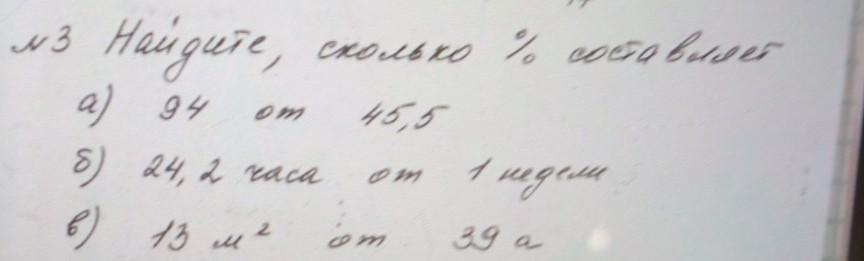 №3 Найдите, сколько % составляет
а) 94 от 45,5
б) 24,2 часа от 1 недели
в) 13 м² от 39 а